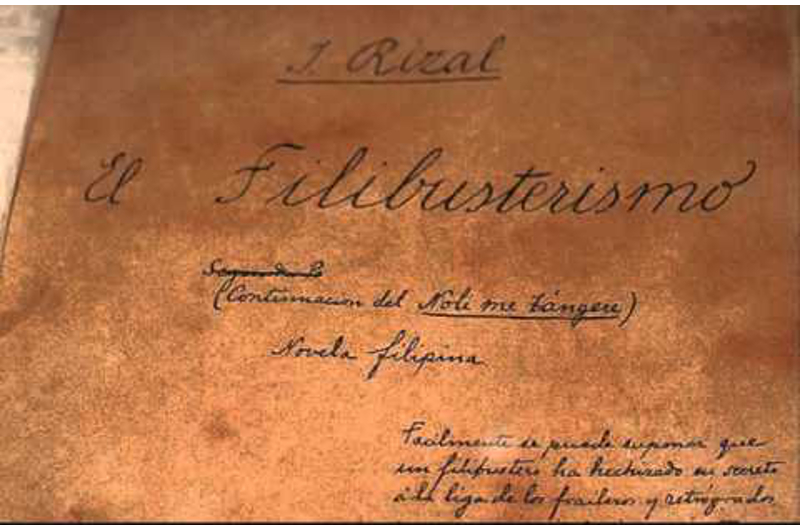 J. Rizal
El Filibusterismo
(Continuacion del Noli me tángere)
Novela filipina
Facilmente se puede suponer que
un filibustero ha hechizado en secreto
á la liga de los fraileros y retrógrados